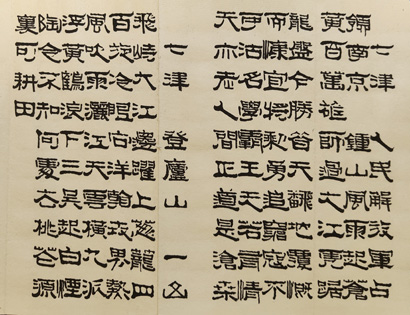 七律 人民解放軍占
領南京 鍾山風雨起蒼
黃百萬雄師過大江虎踞
龍盤今勝昔天翻地覆慨
而慷宜將剩勇追窮寇不
可沽名學霸王天若有情
天亦老人間正道是滄桑
七律 登廬山 一山
飛峙大江邊躍上葱蘢四
百旋冷眼向洋看世界熱
風吹雨灑江天雲橫九派
浮黃鶴浪下三吳起白煙
陶令不知何處去桃花源
裏可耕田